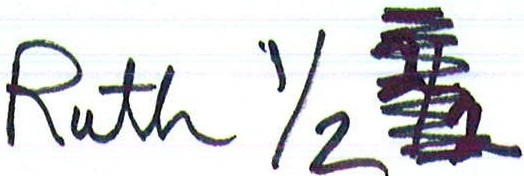 Ruth 1/2